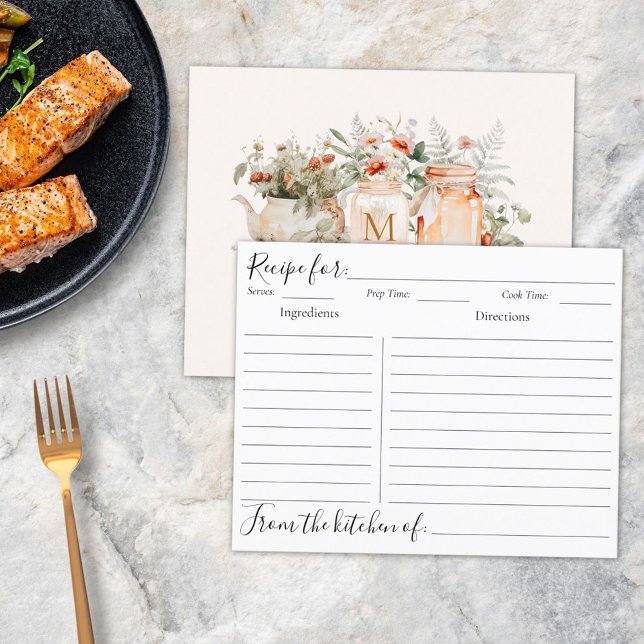 M
Recipe for:
Serves: Prep Time: Cook Time:
Ingredients Directions
From the kitchen of: